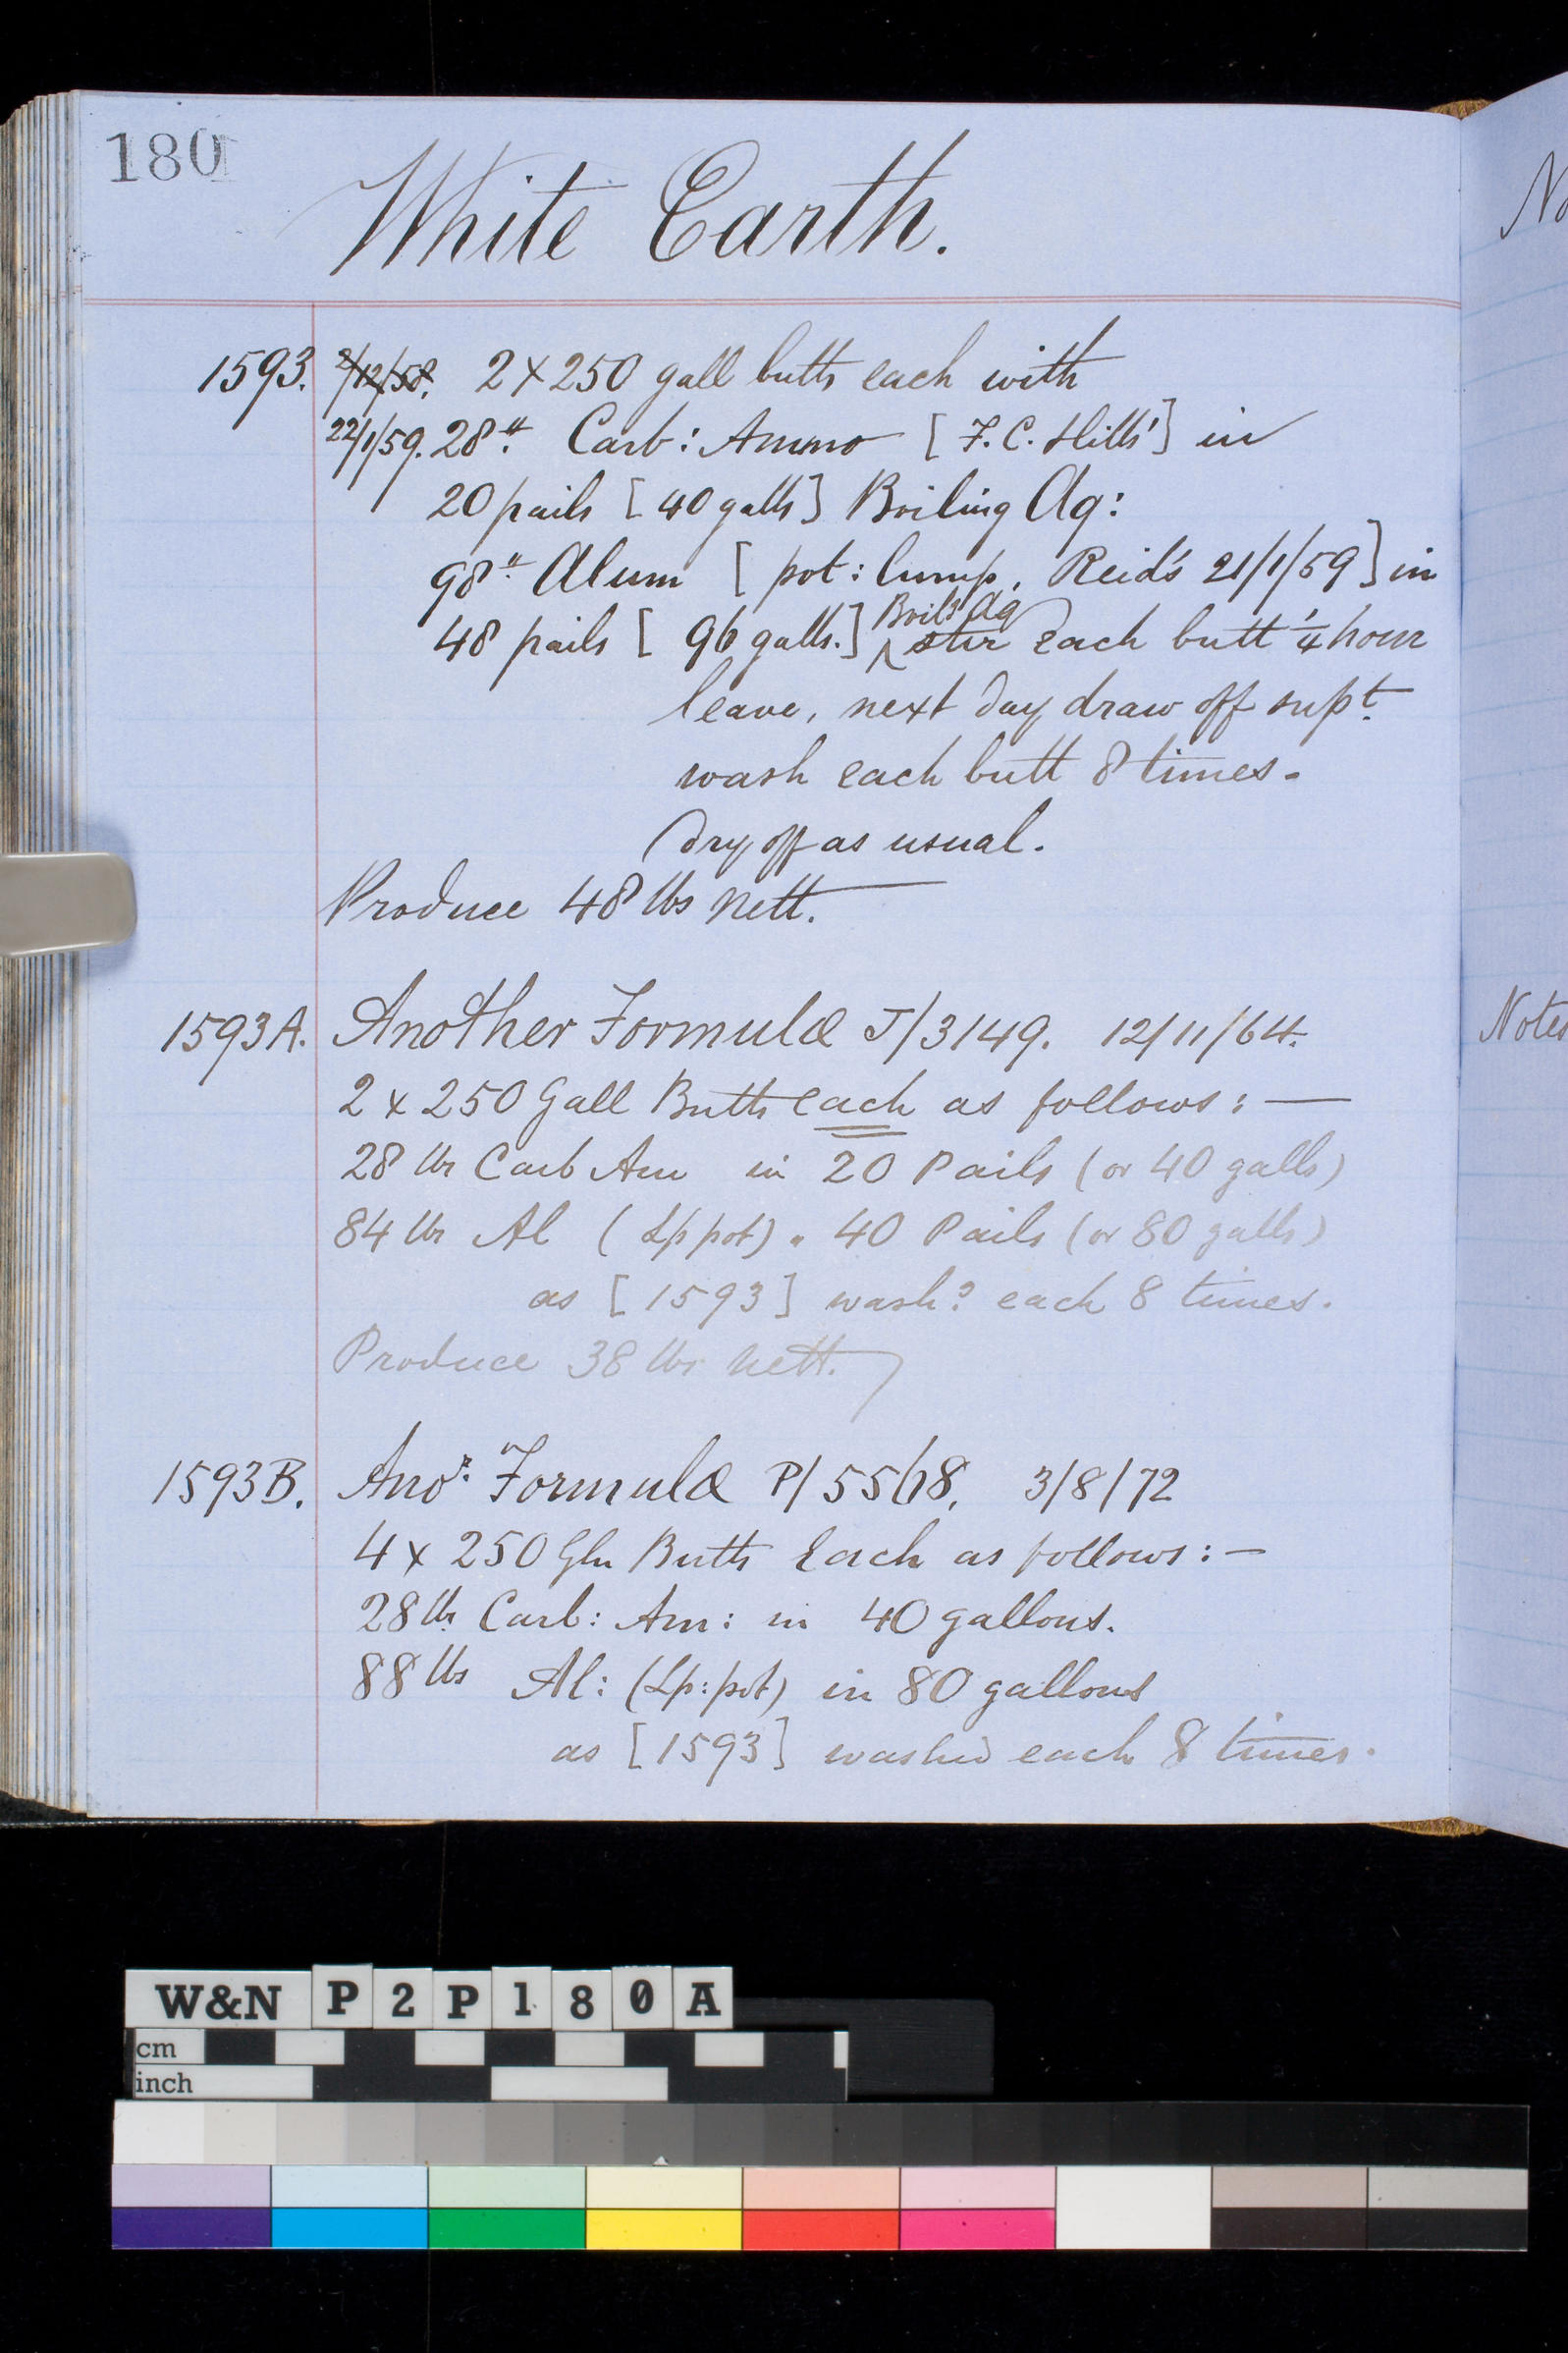 180
White Earth.
1593. 2/12/58. 2 x 250 gall butts each with
22/1/59. 28 lb. Carb: Ammo [F. C. Hills'] in
20 pails [40 galls] Boiling Aq:
98 lb. Alum [pot: lump, Reid's 21/1/59] in
48 pails [96 galls.] Boilg Aq stir each butt 1/4 hour
leave, next day draw off supt.
wash each butt 8 times.
Dry off as usual.
Produce 48 lbs nett.
1593A. Another Formula J/3149. 12/11/64.
2 x 250 Gall Butts each as follows: —
28 lbs Carb Am in 20 Pails (or 40 galls)
84 lbs Al (Lp pot) " 40 Pails (or 80 galls)
as [1593] washd each 8 times.
Produce 38 lbs nett.
1593B. Anor. Formula P/5568. 3/8/72
4 x 250 Gln Butts Each as follows: —
28 lbs Carb: Am: in 40 gallons.
88 lbs Al: (Lp: pot) in 80 gallons
as [1593] washed each 8 times.
No
Notes
W&N P2P180A
cm
inch